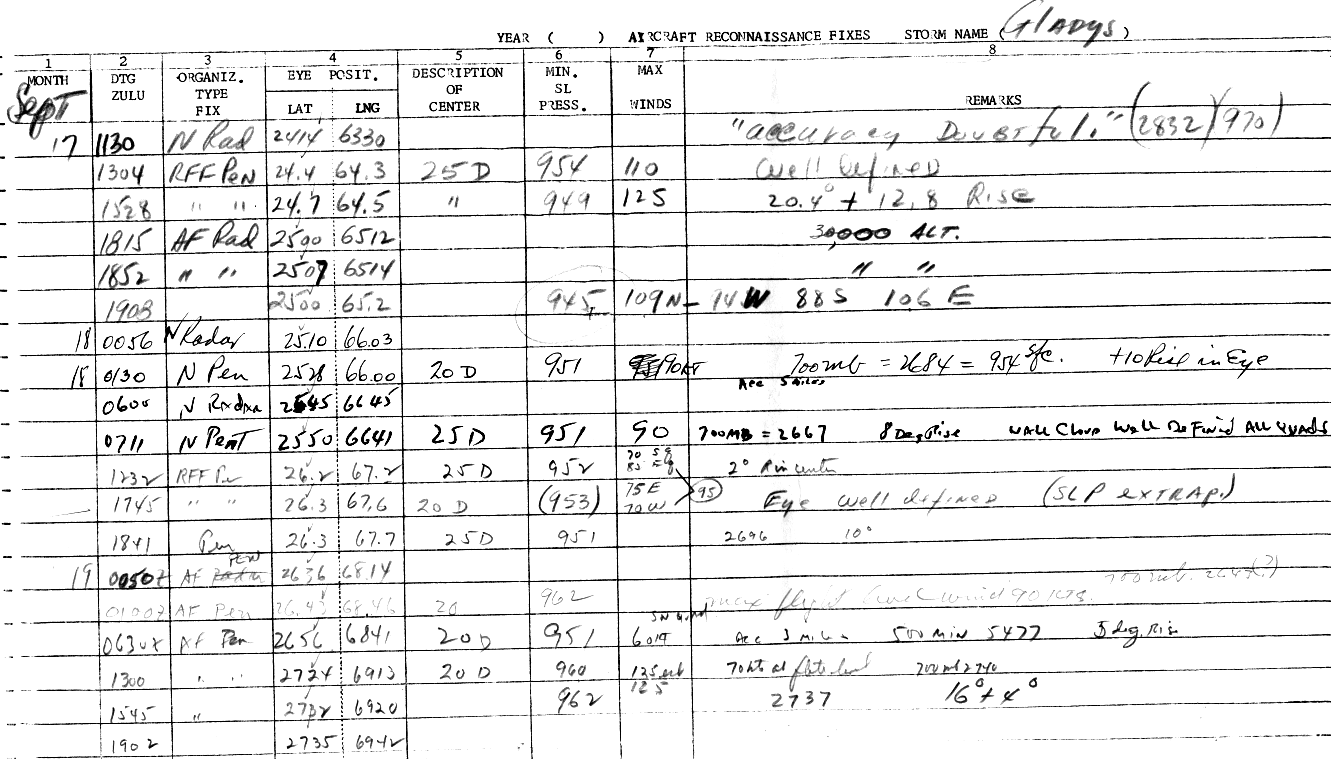 YEAR ( ) AIRCRAFT RECONNAISSANCE FIXES STORM NAME (GLADYS)
1 2 3 4 5 6 7 8
MONTH DTG ZULU ORGANIZ. TYPE FIX EYE POSIT. LAT LNG DESCRIPTION OF CENTER MIN. SL PRESS. MAX WINDS REMARKS
Sept
17 1130 N Rad 2414 6330 "accuracy Doubtful." (2832)(970)
1304 RFF PEN 24.4 64.3 25 D 954 110 Well Defined
1528 " " 24.7 64.5 " 949 125 20.4° + 12.8 RISE
1815 AF Rad 2500 6512 30,000 ALT.
1852 " " 2507 6514 " "
1903 2500 65.2 945 109 N- 94 W 88 S 106 E
18 0056 N Radar 25.10 66.03
18 0130 N Pen 2528 66.00 20 D 951 90 KT 700mb = 2684 = 954 Sfc. +10 Rise in Eye
Acc 5 miles
0600 N 2545 6645
0711 N PenT 2550 6641 25 D 951 90 700MB = 2667 8 Deg Rise WALL Cloud Well DeFined All QUADS
1232 RFF Pen 26.2 67.2 25D 952 2°
1745 " " 26.3 67.6 20 D (953) 75 E 70 W 95 Eye well defined (SLP EXTRAP.)
1841 Pen 26.3 67.7 25D 951 2696 10°
19 0050Z AF PEN 2636 6814 700mb. 2645(?)
0100Z AF Pen 26.43 68.46 20 962 max flight level wind 90 KTS.
0630Z AF Pen 2656 6841 20D 951 Acc 3 miles 500 MIN 5477 5 deg. Rise
1300 " " 2724 6913 20 D 960 70kts at flight level 700mb 2740
1545 " 6920 962 125 2737 16° + 4°
1902 2735 6942